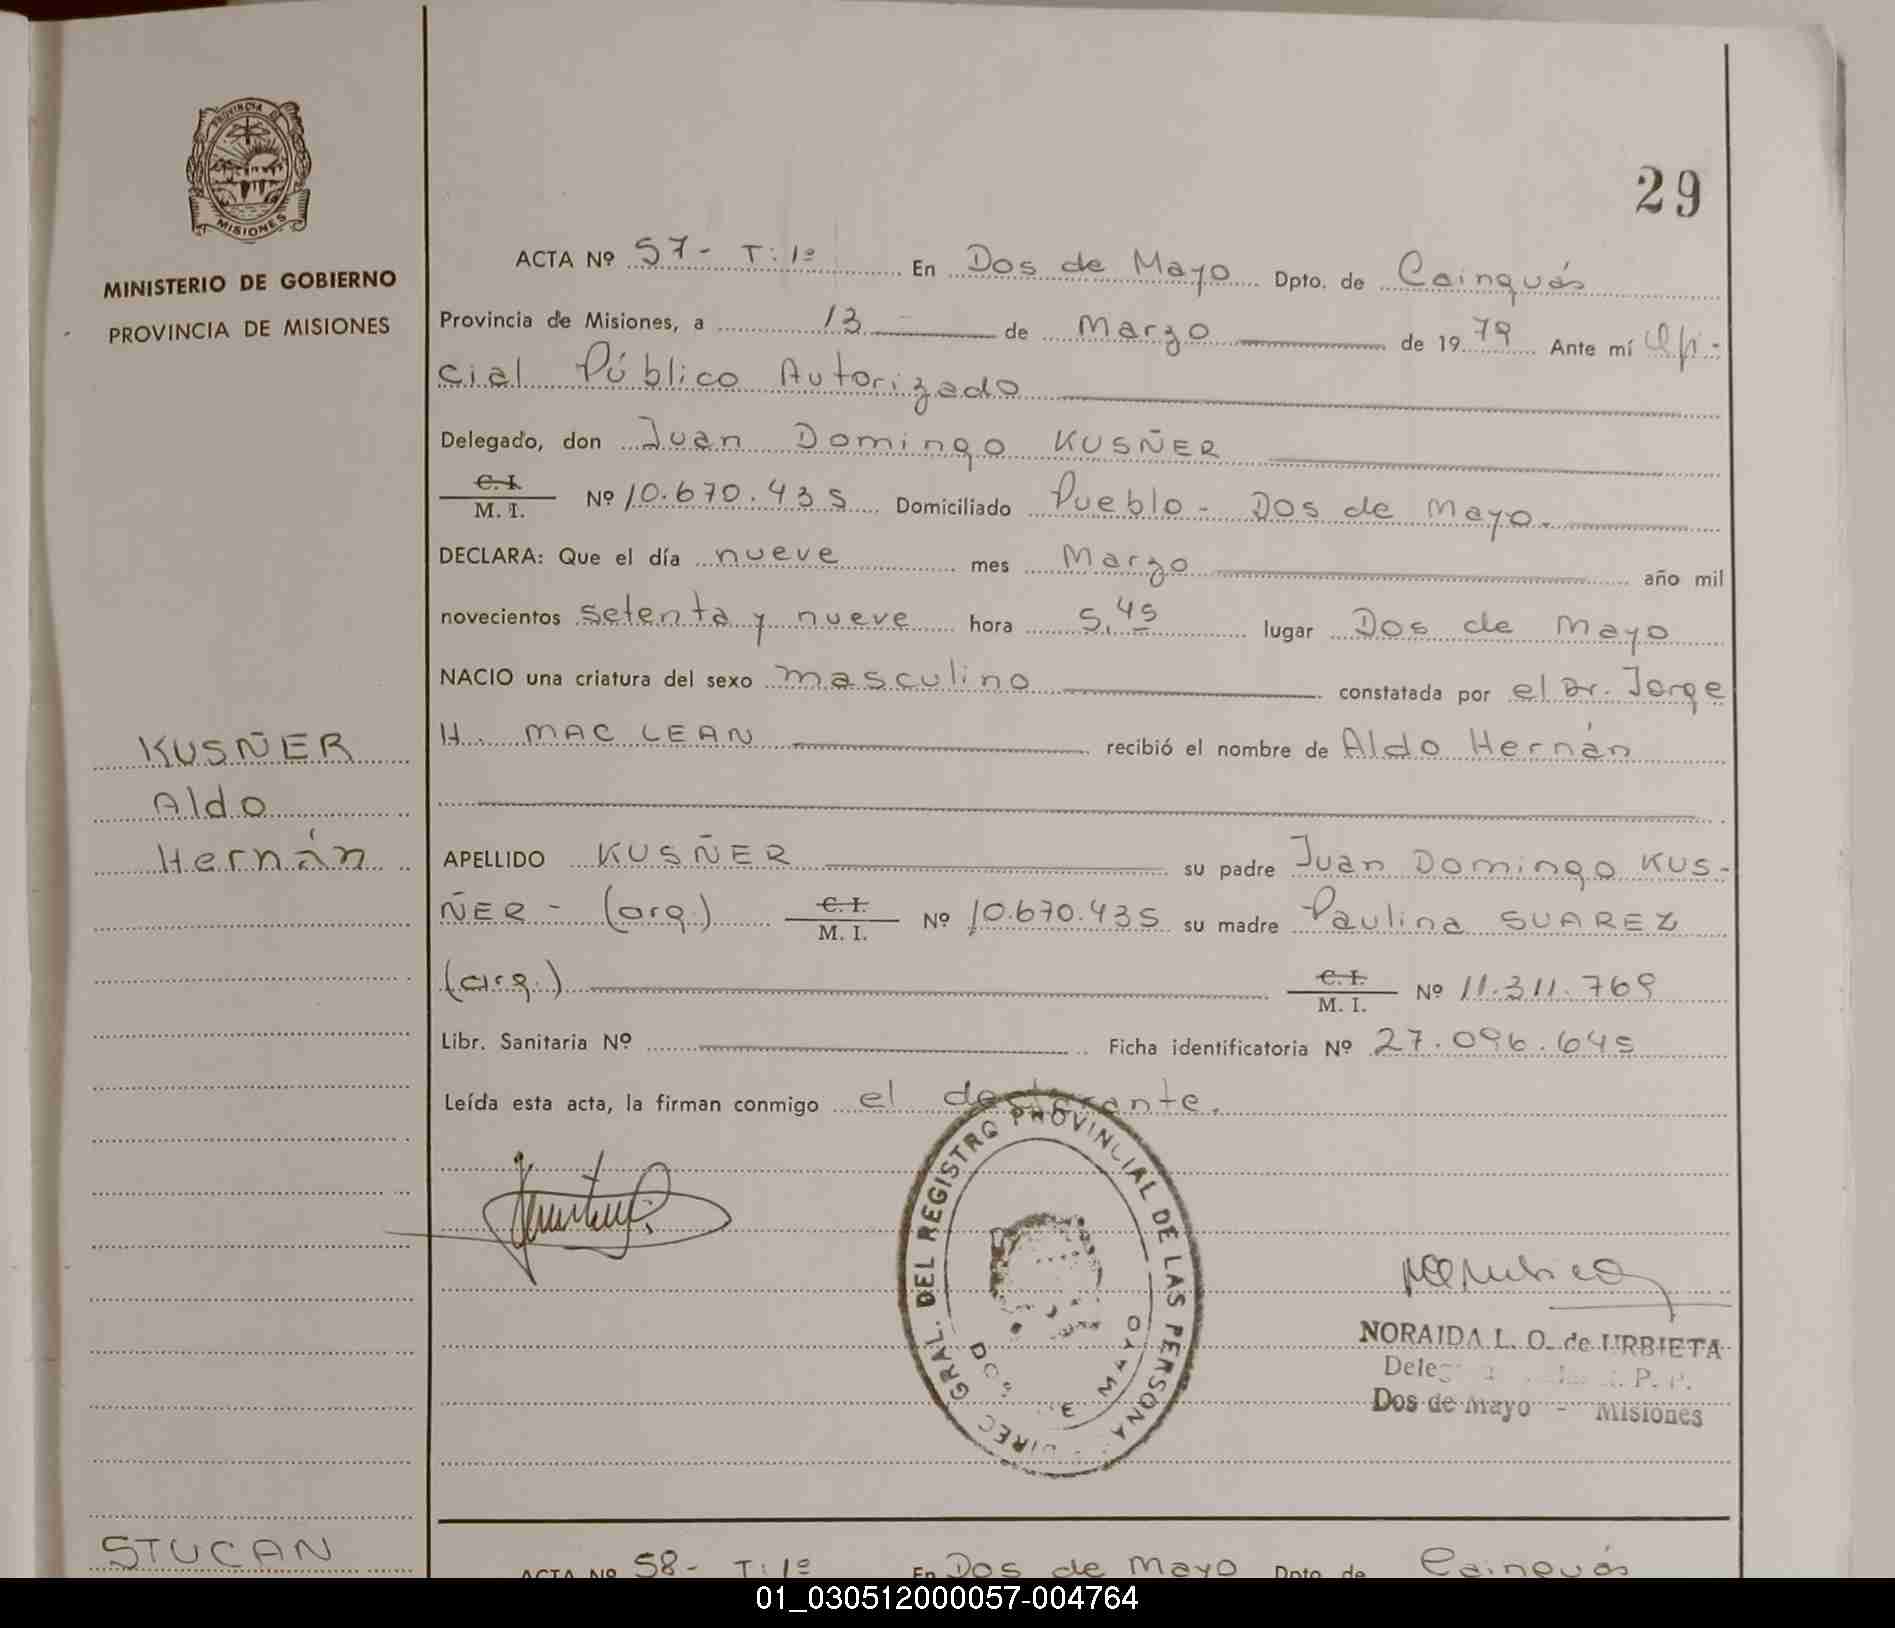 PROVINCIA DE
MISIONES
MINISTERIO DE GOBIERNO
PROVINCIA DE MISIONES
29
ACTA Nº 57- T: 1º En Dos de Mayo Dpto. de Cainguás
Provincia de Misiones, a 13 de Marzo de 1979 Ante mí Ofi-
cial Público Autorizado
Delegado, don Juan Domingo KUSÑER
C. I.
M. I. Nº 10.670.435 Domiciliado Pueblo - Dos de Mayo.
DECLARA: Que el día nueve mes Marzo año mil
novecientos setenta y nueve hora 5,45 lugar Dos de Mayo
NACIO una criatura del sexo masculino constatada por el Dr. Jorge
H. MAC LEAN recibió el nombre de Aldo Hernán
KUSÑER
Aldo
Hernán
APELLIDO KUSÑER su padre Juan Domingo KUS-
ÑER - (arg.) C. I. M. I. Nº 10.670.435 su madre Paulina SUAREZ
(arg.) C. I. M. I. Nº 11.311.769
Libr. Sanitaria Nº Ficha identificatoria Nº 27.096.645
Leída esta acta, la firman conmigo el
DIREC. GRAL. DEL REGISTRO PROVINCIAL DE LAS PERSONA
DOS DE MAYO
NORAIDA L. O. de URBIETA
Dos de Mayo - Misiones
STUCAN
ACTA Nº 58- T: 1º En Dos de Mayo Dpto. de Cainguás
01_030512000057-004764